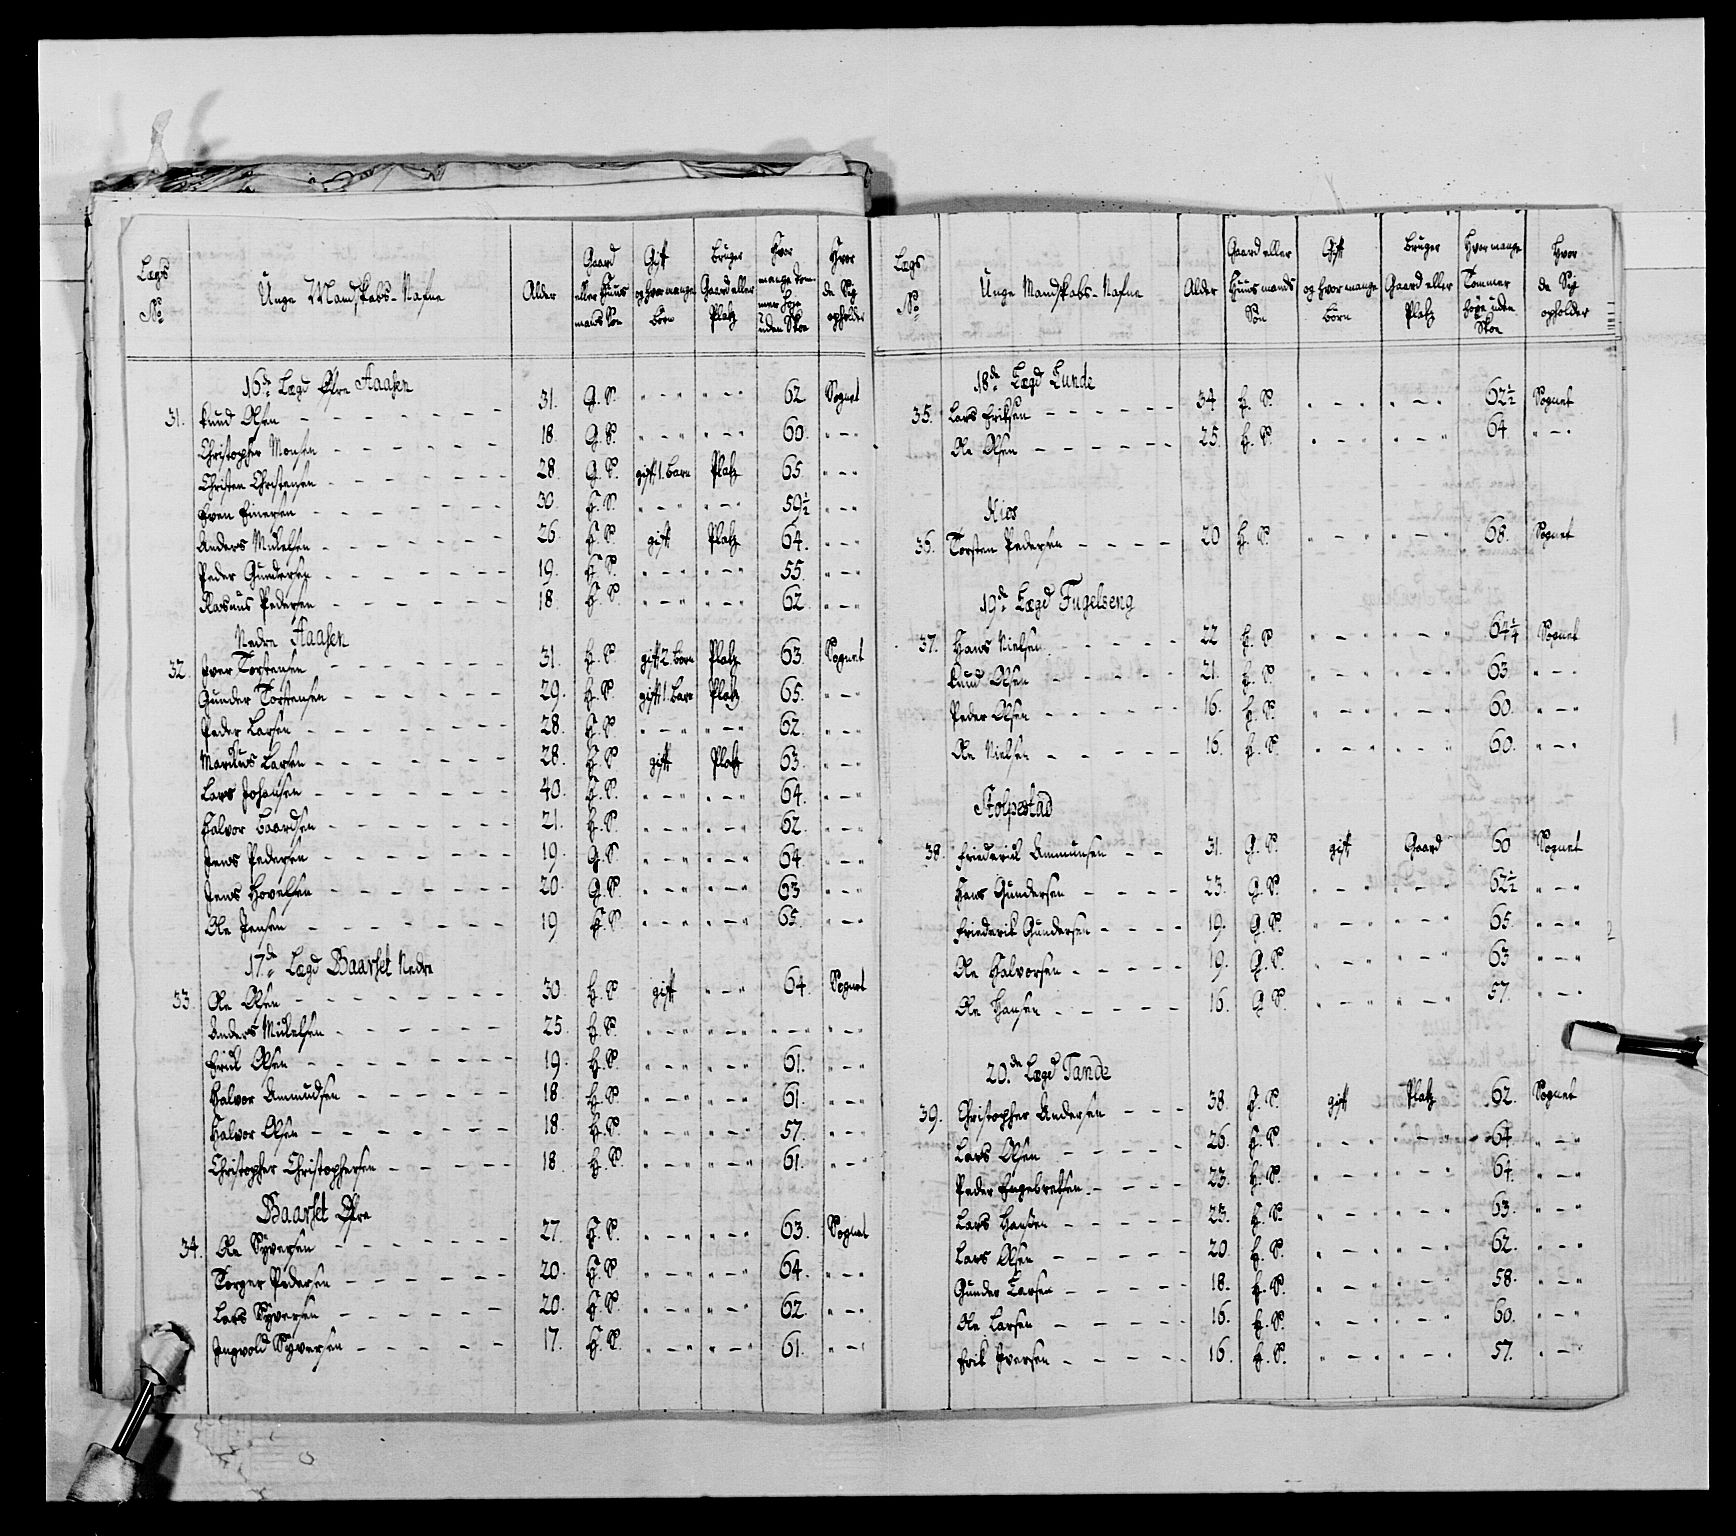 Lægs No
Unge Mandskabs-Nafne
Alder
Gaard eller Huus mans Søn
Gift og hvor mange børn
Bruger Gaard eller Platz
Hvor mange Tommer høje uden Skoe
Hvor de Sig opholder
16de Lægd Øfre Aaasen
31. Knud Olsen 31. G. S. 62 Sognet
Christopher Monsen 18 G. S. 60.
Christen Christensen 28 G. S. gift 1. barn Platz 65
Even Einersen 30 H. S. 59½
Anders Mickelsen 26 H. S. gift Platz 64.
Peder Gundersen 19. H. S. 55
Rasmus Pedersen 18. H. S. 62
Nedre Aaasen
32 Iver Torstensen 31. H. S. gift 2. børn Platz 63. Sognet
Gunder Torstensen 29. H. S. gift 1. barn Platz 65.
Peder Larsen 28. H. S. 62.
Marckus Larsen 28. H. S. gift Platz 63
Lars Johansen 40. H. S. 64.
Halvor Baardsen 21. H. S. 62.
Jens Pedersen 19. G. S. 64.
Jens Hovelsen 20. G. S. 63
Ole Jensen 19 H. S. 65.
17de Lægd Baarset Nedre
33 Ole Olsen 30. H. S. gift 64. Sognet
Anders Mickelsen 25. H. S.
Erick Olsen 19. H. S. 61.
Halvor Ammundsen 18 H. S. 61.
Halvor Olsen 18. H. S. 57.
Christopher Christophersen 18 H. S. 61.
Baarset Øfre
34. Ole Syversen 27. H. S. 63. Sognet
Torger Pedersen 20. H. S. 64.
Lars Syversen 20. H. S. 62
Ingvold Syversen 17. H. S. 61.
Lægs No
Unge Mandskabs-Nafne
Alder
Gaard eller Huus mands Søn
Gift og hvor mange børn
Bruger Gaard eller Platz
Hvor mange Tommer høje uden Skoe
Hvor de Sig opholder
18de Lægd Lunde
35. Lars Eriksen 34 H. S. 62½ Sognet
Ole Olsen 25. H. S. 64
Kios
36. Torsten Pedersen 20 H. S. 68. Sognet
19de Lægd Fugelseng
37. Hans Nielsen 22 H. S. 64¼ Sognet
Knud Olsen 21. H. S. 63
Peder Olsen 16. H. S. 60.
Ole Nielsen 16. H. S. 60.
Stolpestad
38. Friederick Ammunsen 31. G. S. gift Gaard 60 Sognet
Hans Gundersen 23. G. S. 62½
Friederik Gundersen 19. G. S. 65.
Ole Halvorsen 19. G. S. 63
Ole Hansen 16. G. S. 57.
20.de Lægd Tande
39. Christopher Andersen 38. H. S. gift Platz 62. Sognet
Lars Olsen 26. H. S. 64.
Peder Engebretsen 23. H. S. 64.
Lars Hansen 23. H. S. 63.
Lars Olsen 20. H. S. 62.
Gunder Larsen 18. H. S. 58.
Ole Larsen 16. H. S. 60.
Erik Iversen 16. H. S. 57.